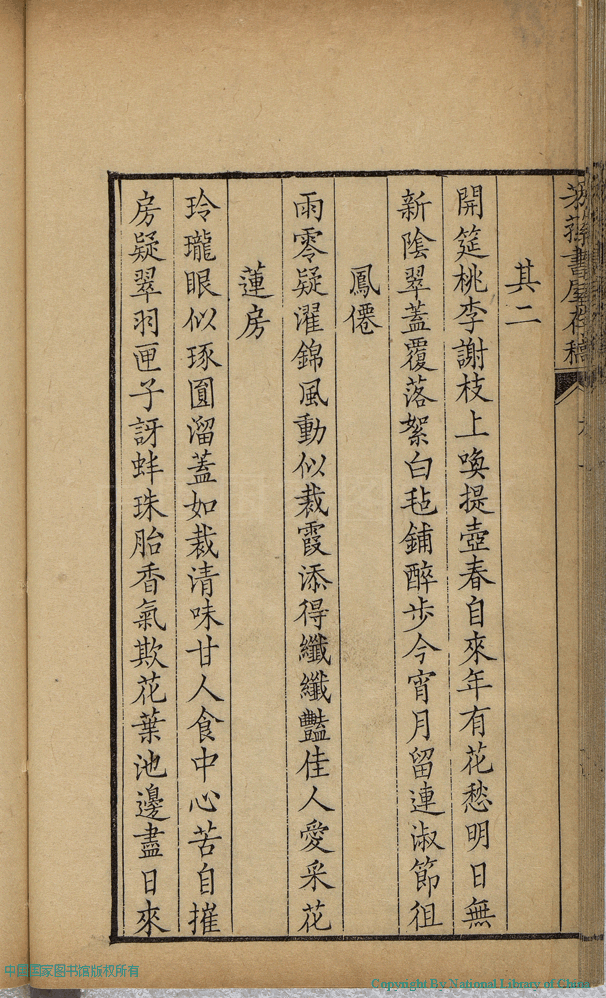 其二
開筵桃李謝枝上喚提壺春自來年有花愁明日無
新陰翠蓋覆落絮白毡鋪醉步今宵月留連淑節徂
鳳僊
雨零疑濯錦風動似裁霞添得纖纖豔佳人愛采花
蓮房
玲瓏眼似琢圓溜蓋如裁清味甘人食中心苦自摧
房疑翠羽匣子訝蚌珠胎香氣欺花葉池邊盡日來
書屋存稿
中国国家图书馆版权所有
Copyright By National Library of China